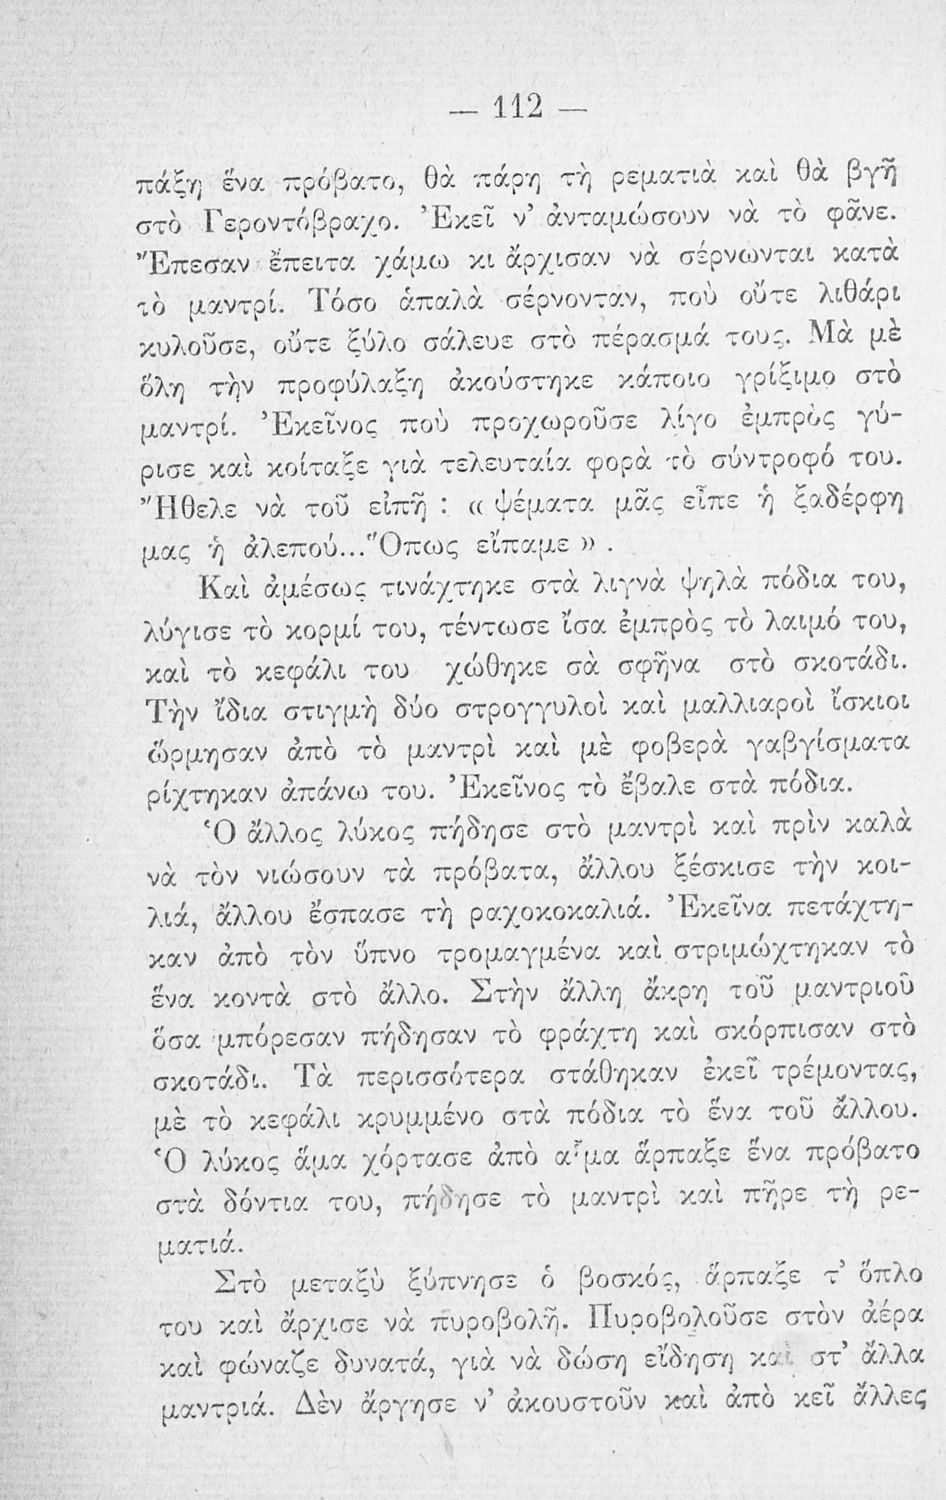 — 112 —
πάξῃ ἕνα πρόβατο, θὰ πάρῃ τὴ ρεματιὰ καὶ θὰ βγῇ
στὸ Γεροντόβραχο. Ἐκεῖ ν’ ἀνταμώσουν νὰ τὸ φᾶνε.
Ἔπεσαν ἔπειτα χάμω κι ἄρχισαν νὰ σέρνωνται κατὰ
τὸ μαντρί. Τόσο ἁπαλὰ σέρνονταν, ποὺ οὔτε λιθάρι
κυλοῦσε, οὔτε ξύλο σάλευε στὸ πέρασμά τους. Μὰ μὲ
ὅλη τὴν προφύλαξη ἀκούστηκε κάποιο γρίξιμο στὸ
μαντρί. Ἐκεῖνος ποὺ προχωροῦσε λίγο ἐμπρὸς γύ-
ρισε καὶ κοίταξε γιὰ τελευταία φορὰ τὸ σύντροφό του.
Ἤθελε νὰ τοῦ εἰπῇ : « ψέματα μᾶς εἶπε ἡ ξαδέρφη
μας ἡ ἀλεπού...Ὅπως εἴπαμε » .
Καὶ ἀμέσως τινάχτηκε στὰ λιγνὰ ψηλὰ πόδια του,
λύγισε τὸ κορμί του, τέντωσε ἴσα ἐμπρὸς τὸ λαιμό του,
καὶ τὸ κεφάλι του χώθηκε σὰ σφῆνα στὸ σκοτάδι.
Τὴν ἴδια στιγμὴ δύο στρογγυλοὶ καὶ μαλλιαροὶ ἴσκιοι
ὥρμησαν ἀπὸ τὸ μαντρὶ καὶ μὲ φοβερὰ γαβγίσματα
ρίχτηκαν ἀπάνω του. Ἐκεῖνος τὸ ἔβαλε στὰ πόδια.
Ὁ ἄλλος λύκος πήδησε στὸ μαντρὶ καὶ πρὶν καλὰ
νὰ τὸν νιώσουν τὰ πρόβατα, ἄλλου ξέσκισε τὴν κοι-
λιά, ἄλλου ἔσπασε τὴ ραχοκοκαλιά. Ἐκεῖνα πετάχτη-
καν ἀπὸ τὸν ὕπνο τρομαγμένα καὶ στριμώχτηκαν τὸ
ἕνα κοντὰ στὸ ἄλλο. Στὴν ἄλλη ἄκρη τοῦ μαντριοῦ
ὅσα μπόρεσαν πήδησαν τὸ φράχτη καὶ σκόρπισαν στὸ
σκοτάδι. Τὰ περισσότερα στάθηκαν ἐκεῖ τρέμοντας,
μὲ τὸ κεφάλι κρυμμένο στὰ πόδια τὸ ἕνα τοῦ ἄλλου.
Ὁ λύκος ἅμα χόρτασε ἀπὸ αἷμα ἅρπαξε ἕνα πρόβατο
στὰ δόντια του, πήδησε τὸ μαντρὶ καὶ πῆρε τὴ ρε-
ματιά.
Στὸ μεταξὺ ξύπνησε ὁ βοσκός, ἅρπαξε τ’ ὅπλο
του καὶ ἄρχισε νὰ πυροβολῇ. Πυροβολοῦσε στὸν ἀέρα
καὶ φώναζε δυνατά, γιὰ νὰ δώσῃ εἴδηση καὶ στ’ ἄλλα
μαντριά. Δὲν ἄργησε ν’ ἀκουστοῦν καὶ ἀπὸ κεῖ ἄλλες